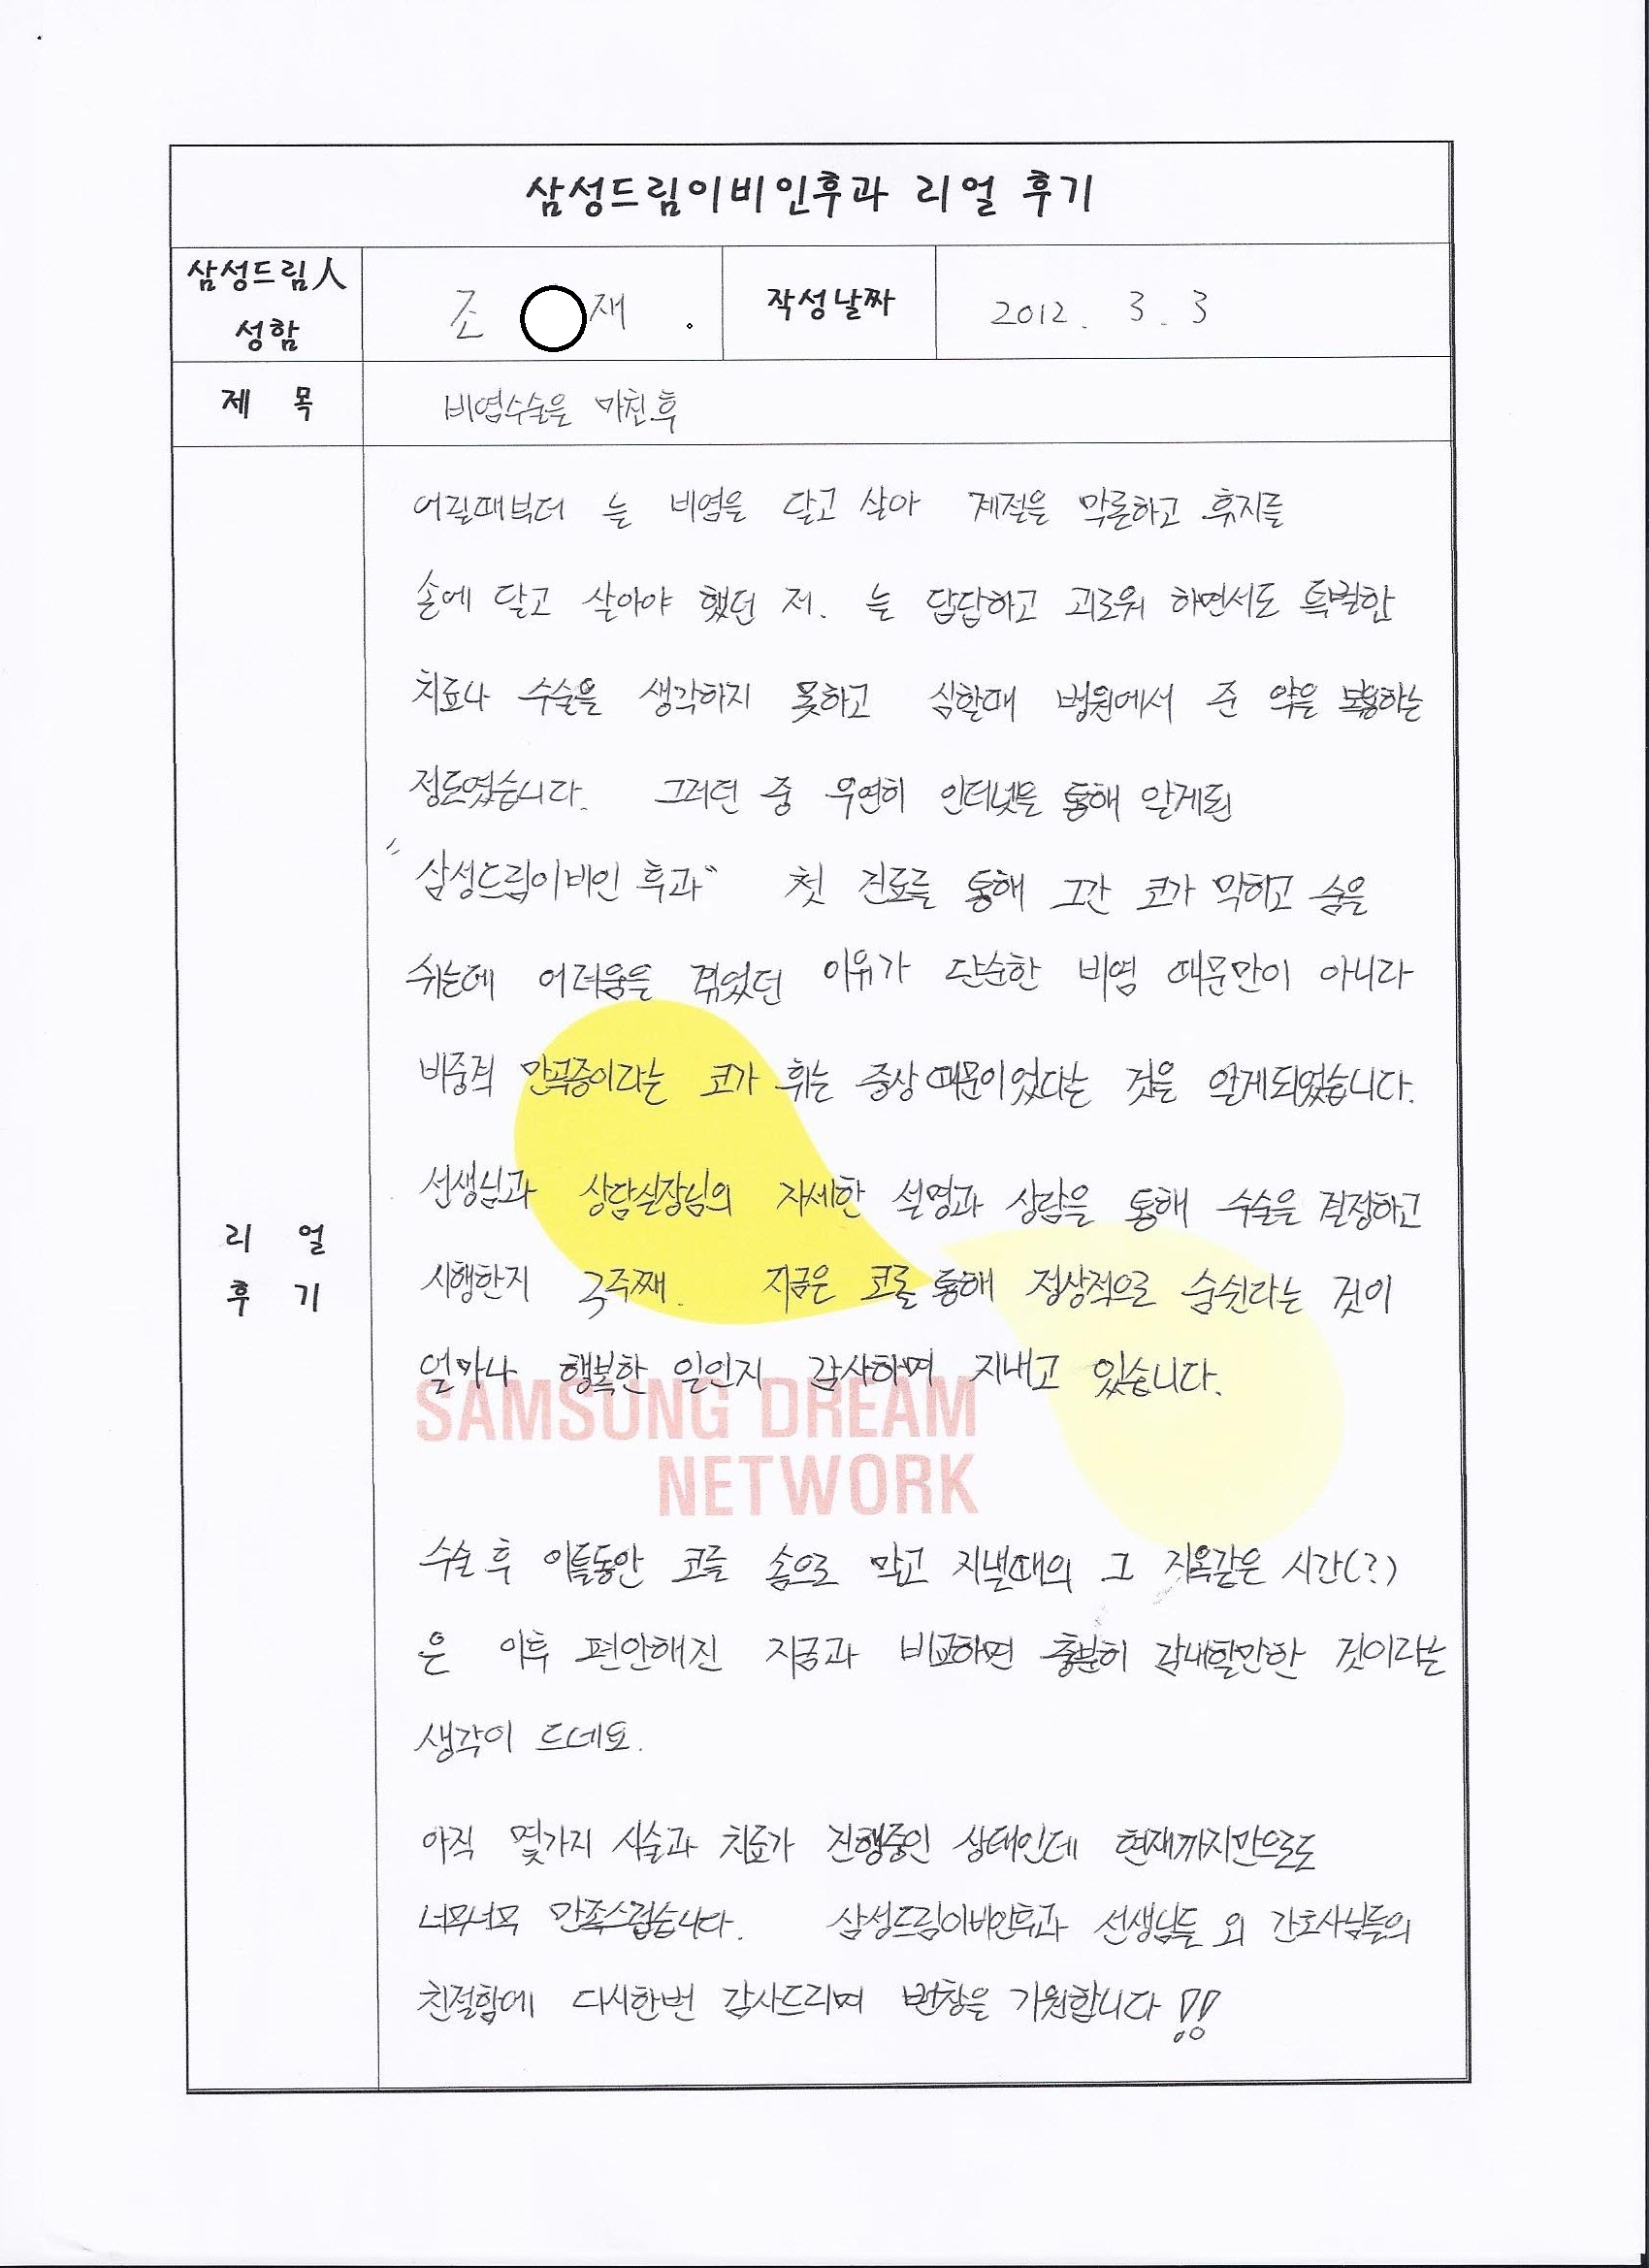 삼성드림이비인후과 리얼 후기
삼성드림人 성함
조 재 .
작성날짜
2012. 3. 3
제 목
비염수술을 마친후
리 얼 후 기
어릴때부터 늘 비염을 달고 살아 계절을 막론하고 휴지를
손에 달고 살아야 했던 저. 늘 답답하고 괴로워 하면서도 특별한
치료나 수술을 생각하지 못하고 심할때 병원에서 준 약을 복용하는
정도였습니다. 그러던 중 우연히 인터넷을 통해 알게된
"삼성드림이비인후과" 첫 진료를 통해 그간 코가 막히고 숨을
쉬는데 어려움을 겪었던 이유가 단순한 비염 때문만이 아니라
비중격 만곡증이라는 코가 휘는 증상 때문이었다는 것을 알게되었습니다.
선생님과 상담실장님의 자세한 설명과 상담을 통해 수술을 결정하고
시행한지 3주째. 지금은 코를 통해 정상적으로 숨쉰다라는 것이
얼마나 행복한 일인지 감사하며 지내고 있습니다.
SAMSUNG DREAM
NETWORK
수술 후 이틀동안 코를 솜으로 막고 지낼때의 그 지옥같은 시간(?)
은 이후 편안해진 지금과 비교하면 충분히 감내할만한 것이라는
생각이 드네요.
아직 몇가지 시술과 치료가 진행중인 상태인데 현재까지만으로도
너무너무 만족스럽습니다. 삼성드림이비인후과 선생님들 외 간호사님들의
친절함에 다시한번 감사드리며 번창을 기원합니다!!